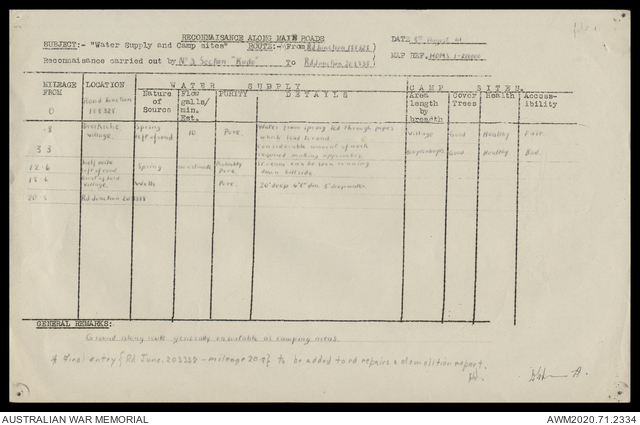 RECONNAISANCE ALONG MAIN ROADS
DATE August 41
SUBJECT:- "Water Supply and Camp sites" ROUTE:- (From Rd Junction
MAP REF.
Reconnaisance carried out by No 2 Section TO Rd Junction 203338)
WATER SUPPLY CAMP SITES.
MILEAGE FROM LOCATION Nature of Source Flow galls/ min. Est. PURITY DETAILS Area length by breadth Cover Trees Health Accessibility
0 Road Junction
.8 village. Spring left of road 10 Pure. Water from spring led through pipes village Good Healthy Fair.
which lead to road
3.3 Considerable amount of work Good Healthy Bad.
required making approaches
12.6 left of road Spring Probably Pure. Stream can be seen running
down hillside
village. Wells Pure. 20' deep 4'6" dia. 5' deep water
20.5 Rd Junction 203338
GENERAL REMARKS:
Ground along route generally unsuitable as camping areas.
final entry (Rd Junc. 203338 - mileage 20.5) to be added to rd repairs & demolition report.
AUSTRALIAN WAR MEMORIAL AWM2020.71.2334